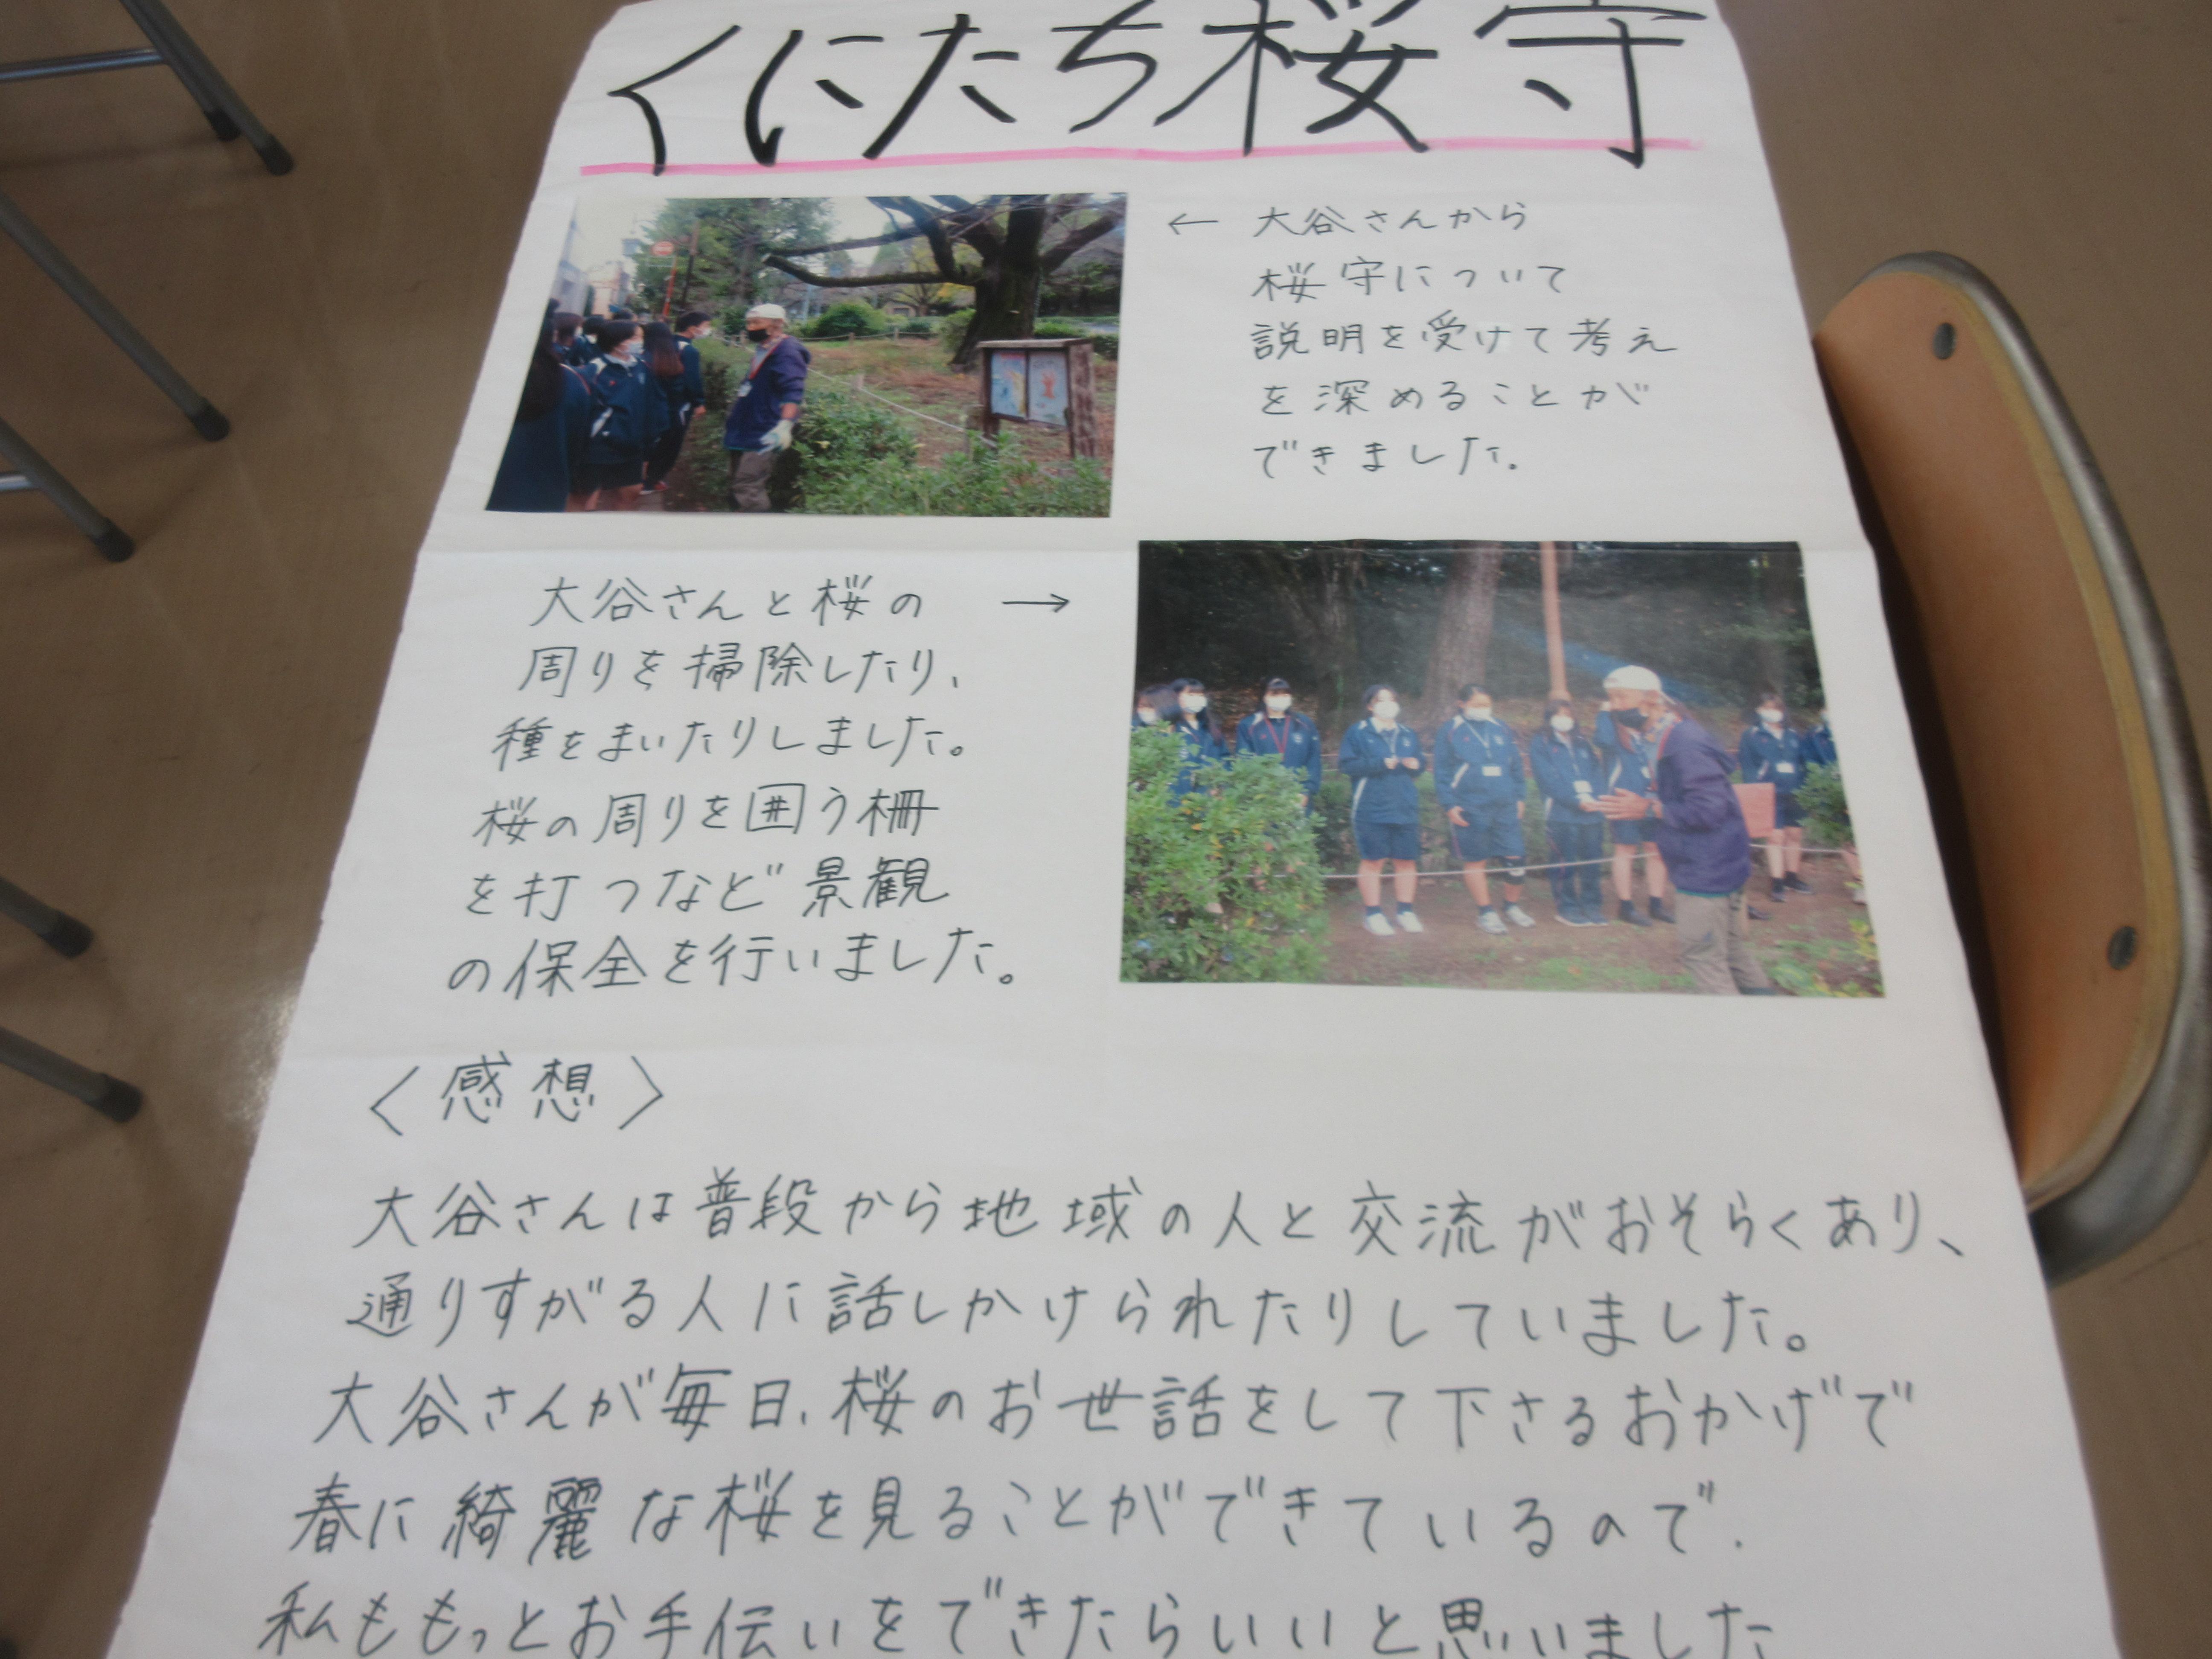 くにたち桜守
← 大谷さんから
桜守について
説明を受けて考え
を深めることが
できました。
大谷さんと桜の →
周りを掃除したり、
種をまいたりしました。
桜の周りを囲う柵
を打つなど景観
の保全を行いました。
〈感想〉
大谷さんは普段から地域の人と交流がおそらくあり、
通りすがる人に話しかけられたりしていました。
大谷さんが毎日、桜のお世話をして下さるおかげで
春に綺麗な桜を見ることができているので、
私ももっとお手伝いをできたらいいと思いました